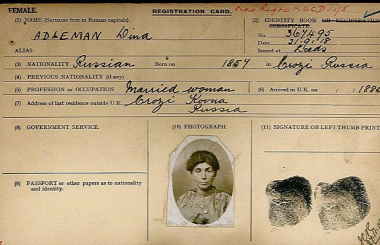 FEMALE.
REGISTRATION CARD.
(1) NAME (Surname first in Roman capitals).
ADLEMAN Dina
ALIAS
(2) IDENTITY BOOK OR REGISTRATION CERTIFICATE.
No. 367495
Date 21-9-18
Issued at Leeds
(3) NATIONALITY Russian Born on 1857 in Crozi Russia
(4) PREVIOUS NATIONALITY (if any)
(5) PROFESSION or OCCUPATION Married woman (6) Arrived in U.K. on
(7) Address of last residence outside U.K. Crozi Kovna
Russia
(8) GOVERNMENT SERVICE.
(10) PHOTOGRAPH.
(11) SIGNATURE OR LEFT THUMB PRINT
(9) PASSPORT or other papers as to nationality
and identity.